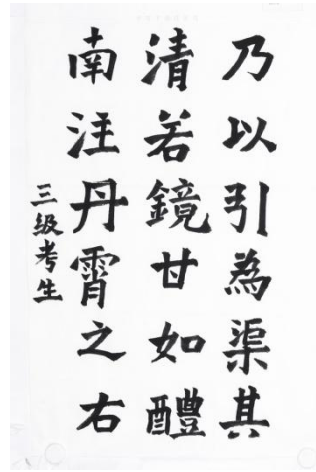 乃以引為渠其
清若鏡甘如醴
南注丹霄之右
三級考生